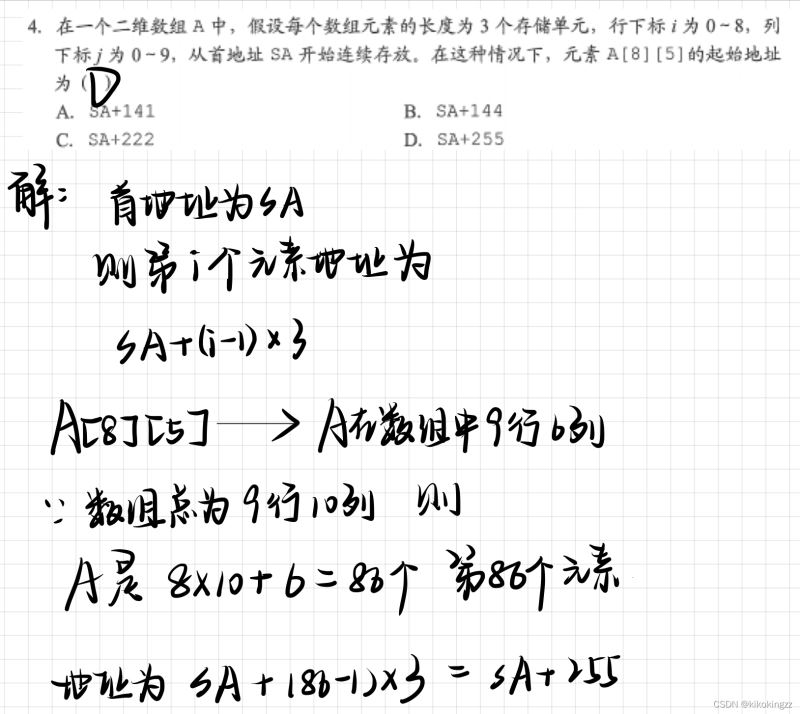 4. 在一个二维数组 A 中，假设每个数组元素的长度为 3 个存储单元，行下标 i 为 0~8，列
下标 j 为 0~9，从首地址 SA 开始连续存放。在这种情况下，元素 A[8][5]的起始地址
为（D）
A. SA+141 B. SA+144
C. SA+222 D. SA+255
解：首地址为SA
则第i个元素地址为
SA+(i-1)×3
A[8][5] → A在数组中9行6列
∵ 数组总为9行10列 则
A是 8×10+6=86个 第86个元素
地址为 SA+(86-1)×3 = SA+255
CSDN @kikokingzz